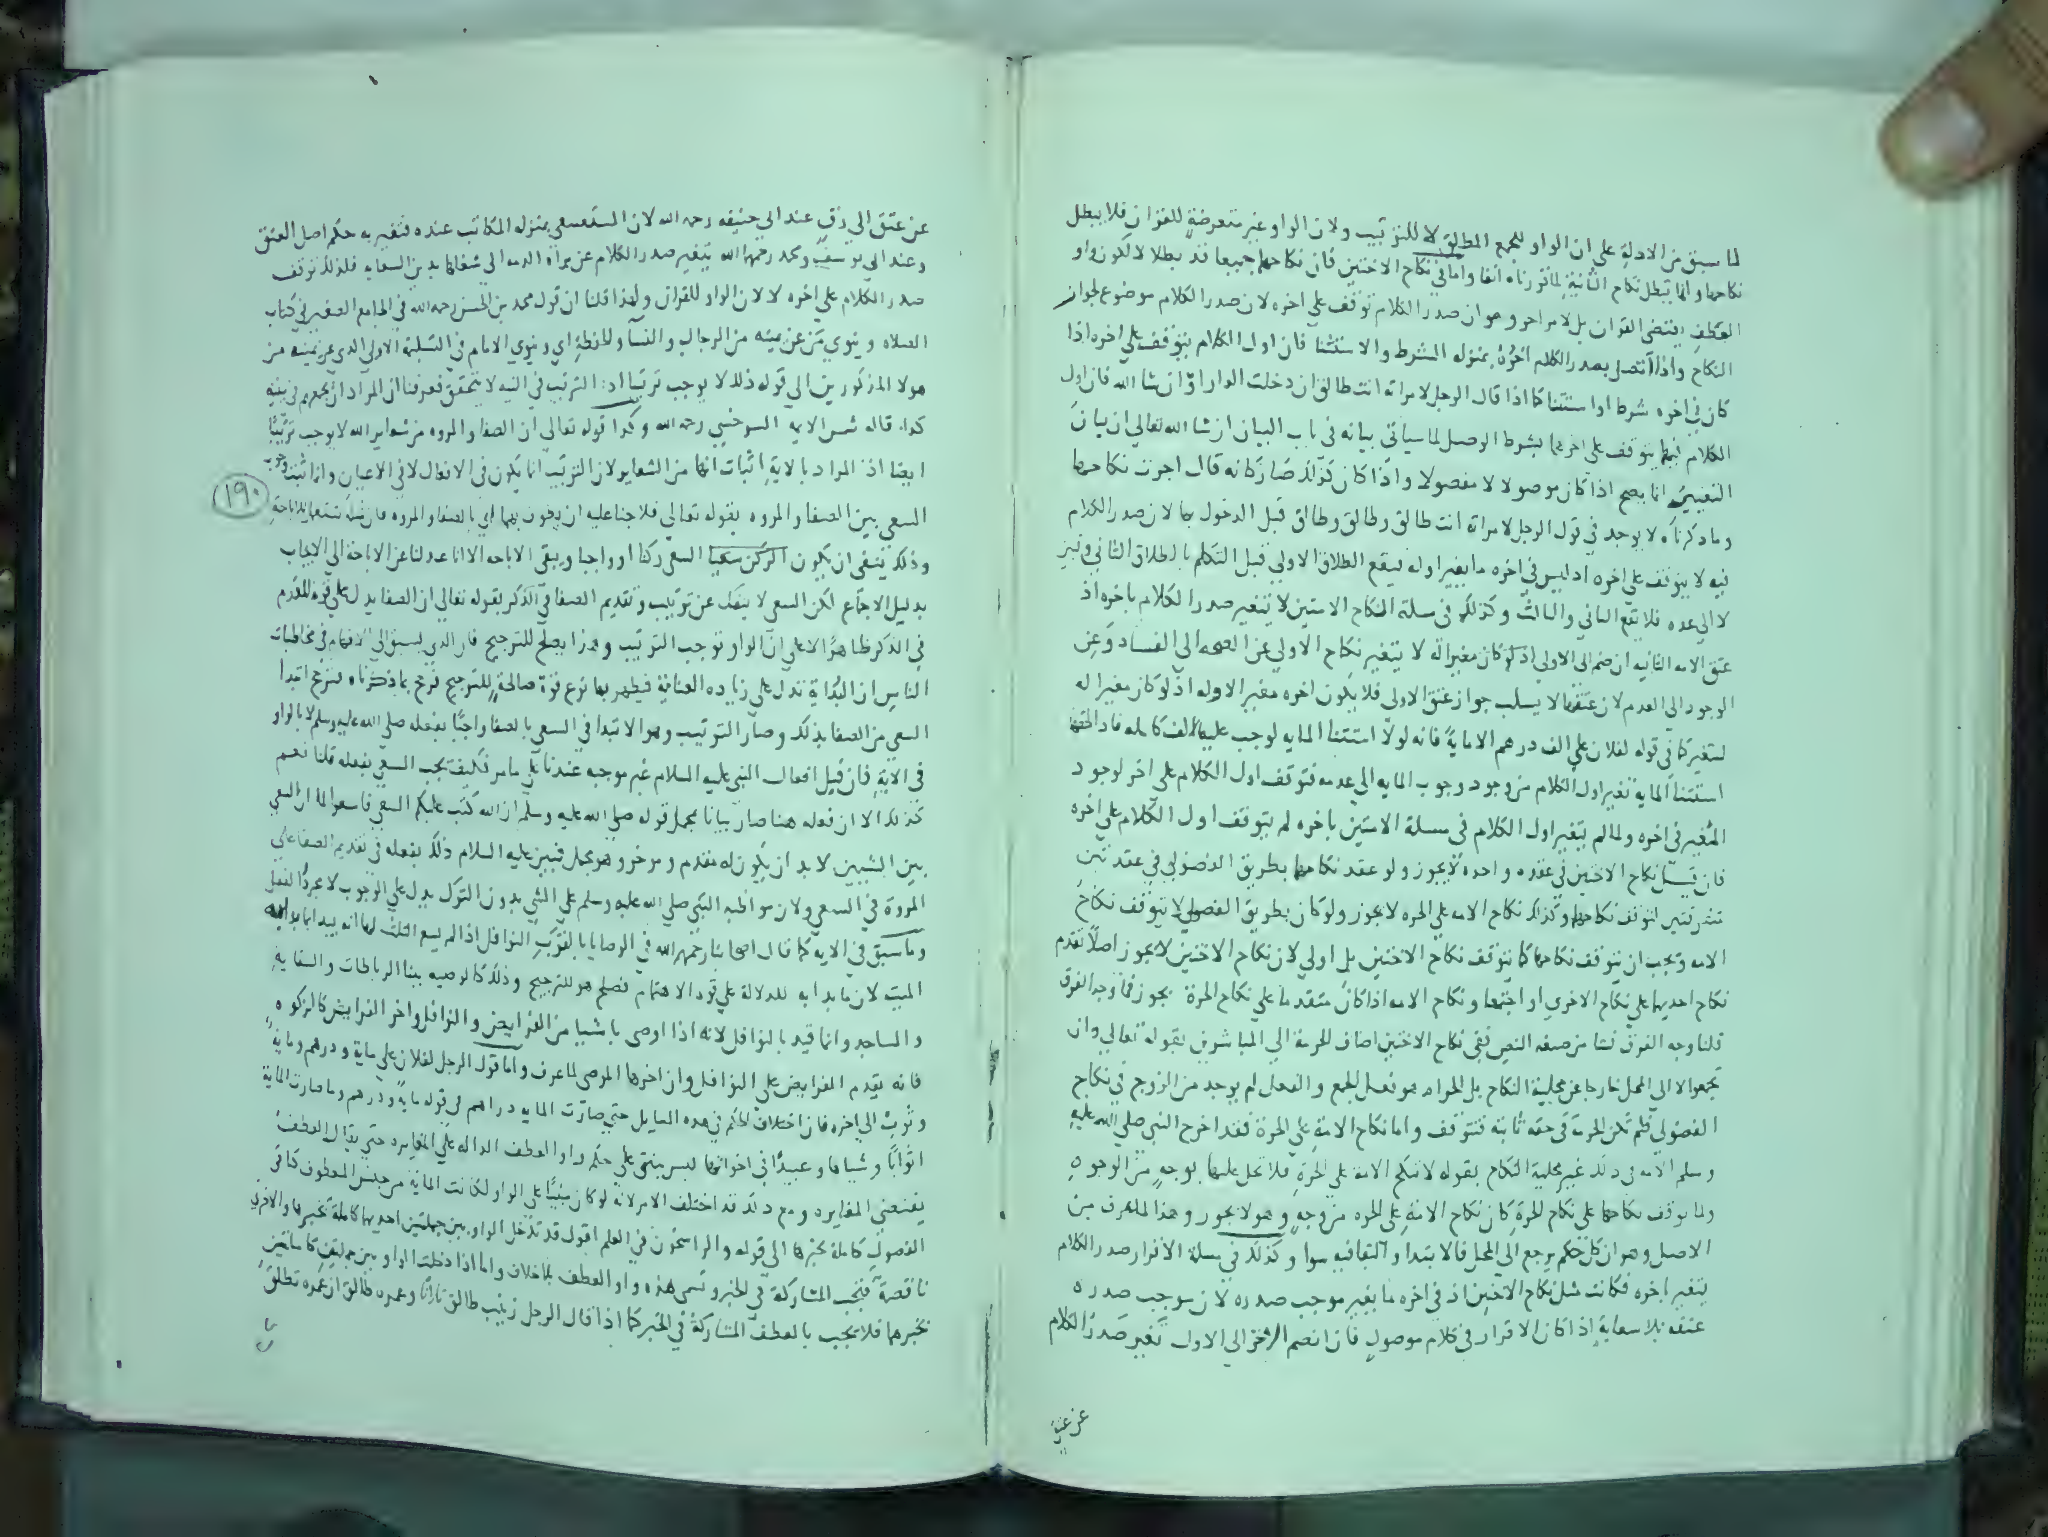 لما سبق من الادلة على ان الواو للجمع المطلق لا للترتيب ولان الواو غير متعرضة للقران فلا يبطل
نكاحها وانما تبطل نكاح الثانية لما قررناه انفا واما في نكاح الاختين فان نكاحهما جميعا قد بطلا لا لكون واو
العطف يقتضي القران بل لامر اخر وهو ان صدر الكلام توقف على اخره لان صدر الكلام موضوع لجواز
النكاح واذا اتصل بصدر الكلام اخره بمنزله الشرط والاستثنا فان اول الكلام يتوقف على اخره اذا
كان في اخره شرط او استثنا كما اذا قال الرجل لامراته انت طالق ان دخلت الدار او ان شا الله فان اول
الكلام فيهما يتوقف على اخرهما بشرط الوصل لما سياتي بيانه في باب البيان ان شا الله تعالى ان بيان
التغيير انما يصح اذا كان موصولا لا مفصولا واذا كان كذلك صار كانه قال اجزت نكاحهما
وما ذكرناه لا يوجد في قول الرجل لامراته انت طالق وطالق وطالق قبل الدخول بها لان صدر الكلام
فيه لا يتوقف على اخره اذ ليس في اخره ما يغير اوله فيقع الطلاق الاول قبل التكلم بالطلاق الثاني وتبين
لا الى عده فلا تقع الثاني والثالث وكذلك في مسلة النكاح الامتين لا يتغير صدر الكلام باخره اذ
عتق الامه الثانيه ان ضم الى الاولى اذ لو كان مغيرا له لا يتغير نكاح الاولى عن الصحه الى الفساد وعن
الوجود الى العدم لان عتقها لا يسلب جواز عتق الاولى فلا يكون اخره مغيرا لاوله اذ لو كان مغيرا له
لتغير كما في قوله لفلان على الف درهم الا ماية فانه لولا استثنا المايه لوجب عليه الالف كامله فاذ الحقها
استثنا المايه تغير اول الكلام من وجود وجوب المايه الى عدمه فتوقف اول الكلام على اخر لوجود
المغير في اخره ولما لم يتغير اول الكلام في مسلة الامتين باخره لم يتوقف اول الكلام على اخره
فان قيل نكاح الاختين في عقده واحدة لا يجوز ولو عقد نكاحهما بطريق الفضولي في عقدتين
متفرقتين لتوقف نكاحهما وكذلك نكاح الامه على الحره لا يجوز ولو كان بطريق الفضولي لا يتوقف نكاح
الامه وتجب ان تتوقف نكاحها كما تتوقف نكاح الاختين بل اولى لان نكاح الاختين لا يجوز اصلا تقدم
نكاح احديهما على نكاح الاخرى او اجتمعا ونكاح الامه اذا كان متقدما على نكاح الحرة يجوز فما وجه الفرق
قلنا وجه الفرق نشا من صيغه النص ففي نكاح الاختين اضاف الحرمة الى المباشرين بقوله تعالى وان
تجمعوا لا الى المحل خارجا عن محلية النكاح بل الحرام هو فعل الجمع والفعل لم يوجد من الزوج في نكاح
الفضولي فلم تكن الحرمة في حقه ثابتة فتتوقف واما نكاح الامة على الحرة فقد اخرج النبي صلى الله عليه
وسلم الامه في ذلك غير محلية النكاح بقوله لا تنكح الامة على الحرة فلا تحل عليها بوجه من الوجوه
ولما توقف نكاحها على نكاح الحرة كان نكاح الامة على الحره من وجه وهو لا يجوز وهذا لما عرف من
الاصل وهو ان كل حكم يرجع الى المحل فالابتدا والبقا فيه سوا وكذلك في مسلة الاقرار صدر الكلام
يتغير اخره فكانت مثل نكاح الاختين اذ في اخره ما يغير موجب صدره لان موجب صدره
عتقه بلا سعاية اذا كان الاقرار في كلام موصول فاذا انضم الاخر الى الاول تغير صدر الكلام
عن عتق
عن عتق الى رق عند ابي حنيفه رحمه الله لان المستسعى بمنزله المكاتب عنده فتغير به حكم اصل العتق
وعند ابي يوسف ومحمد رحمهما الله يتغير صدر الكلام عن براة الذمه الى شغلها بدين السعايه فلذلك توقف
صدر الكلام على اخره لا لان الواو للقران ولهذا قلنا ان قول محمد بن الحسن رحمه الله في الجامع الصغير في كتاب
الصلاه وينوي من عن يمينه من الرجال والنسآ والحفظة اي وينوي الامام في التسليمة الاولى الذي عن يمينه من
هولا المذكورين الى قوله ذلك لا يوجب ترتيبا اذ الترتيب في النيه لا يتحقق فعرفنا ان المراد ان يجمعهم في نيته
كذا قاله شمس الايمه السرخسي رحمه الله وكذا قوله تعالى ان الصفا والمروه من شعاير الله لا يوجب ترتيبا
ايضا اذ المراد بالاية اثبات انها من الشعاير لان الترتيب انما يكون في الافعال لا في الاعيان وانما ثبت وجوب
١٩٠
السعي بين الصفا والمروه بقوله تعالى فلا جناح عليه ان يطوف بهما اي بالصفا والمروه فان مثله تستعمل للاباحة
وذلك ينفي ان يكون السعي ركنا او واجبا ويبقى الاباحه الا انا عدلنا عن الاباحة الى الايجاب
بدليل الاجماع لكن السعي لا ينفك عن ترتيب وتقديم الصفا في الذكر بقوله تعالى ان الصفا يدل على قوة المقدم
في الذكر ظاهرا لا على ان الواو توجب الترتيب وهذا يصلح للترجيح فان الذي يسبق الى الافهام في مخاطبات
الناس ان البداية تدل على زياده العناية فيظهر بها نوع قوة صالحة للترجيح فرجح بما ذكرناه فترجح ابتدا
السعي من الصفا بذلك وصار الترتيب وهو الابتدا في السعي بالصفا واجبا بفعله صلى الله عليه وسلم لا بالواو
في الاية فان قيل افعال النبي عليه السلام غير موجبه عندنا على ما مر فكيف يجب السعي بفعله قلنا نعم
كذلك الا ان فعله هنا صار بيانا لمجمل قوله صلى الله عليه وسلم ان الله كتب عليكم السعي فاسعوا لما ان السعي
بين الشيين لا بد ان يكون له مقدم وموخر وهو مجمل فبين عليه السلام ذلك بفعله في تقديم الصفا على
المروة في السعي ولان مواظبه النبي صلى الله عليه وسلم على الشي بدون الترك يدل على الوجوب لا مجرد الفعل
وما سبق في الايه كما قال اصحابنا رحمهم الله في الوصايا بالقرب النوافل اذا لم يسع الثلث لها انه يبدا بما بدا به
الميت لان ما بدا به للدلالة على قوة الاهتمام فصلح هو للترجيح وذلك كالوصيه ببنا الرباطات والسقاية
والمساجد وانما قيد بالنوافل لانه اذا اوصى باشيا من الفرايض والنوافل واخر الفرايض كالزكوه
فانه يقدم الفرايض على النوافل وان اخرها الموصى لما عرف واما قول الرجل لفلان على ماية ودرهم وماية
وثوب الى اخره فان اختلاف الحكم في هذه المسايل حتى صارت المايه دراهم في قوله مايه ودرهم وما صارت الماية
اثوابا وشياها وعبيدا في اخواتها ليس يبتني على حكم واو العطف الداله على المغايره حتى يقال العطف
يقتضي المغايره ومع ذلك قد اختلف الامر لانه لو كان مبنيا على الواو لكانت الماية من جنس المعطوف كما في
الفصول كاملة بخبرها الى قوله والراسخون في العلم اقول قد تدخل الواو بين جملتين احديهما كاملة بخبرها والاخرى
ناقصة فتجب المشاركة في الخبر وتسمى هذه واو العطف بلا خلاف واما اذا دخلت الواو بين جملتين كاملتين
بخبرهما فلا يجب بالعطف المشاركة في الخبر كما اذا قال الرجل زينب طالق ثلاثا وعمره طالق ان عمره تطلق